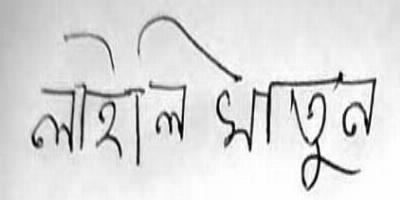 লাইলি খাতুন